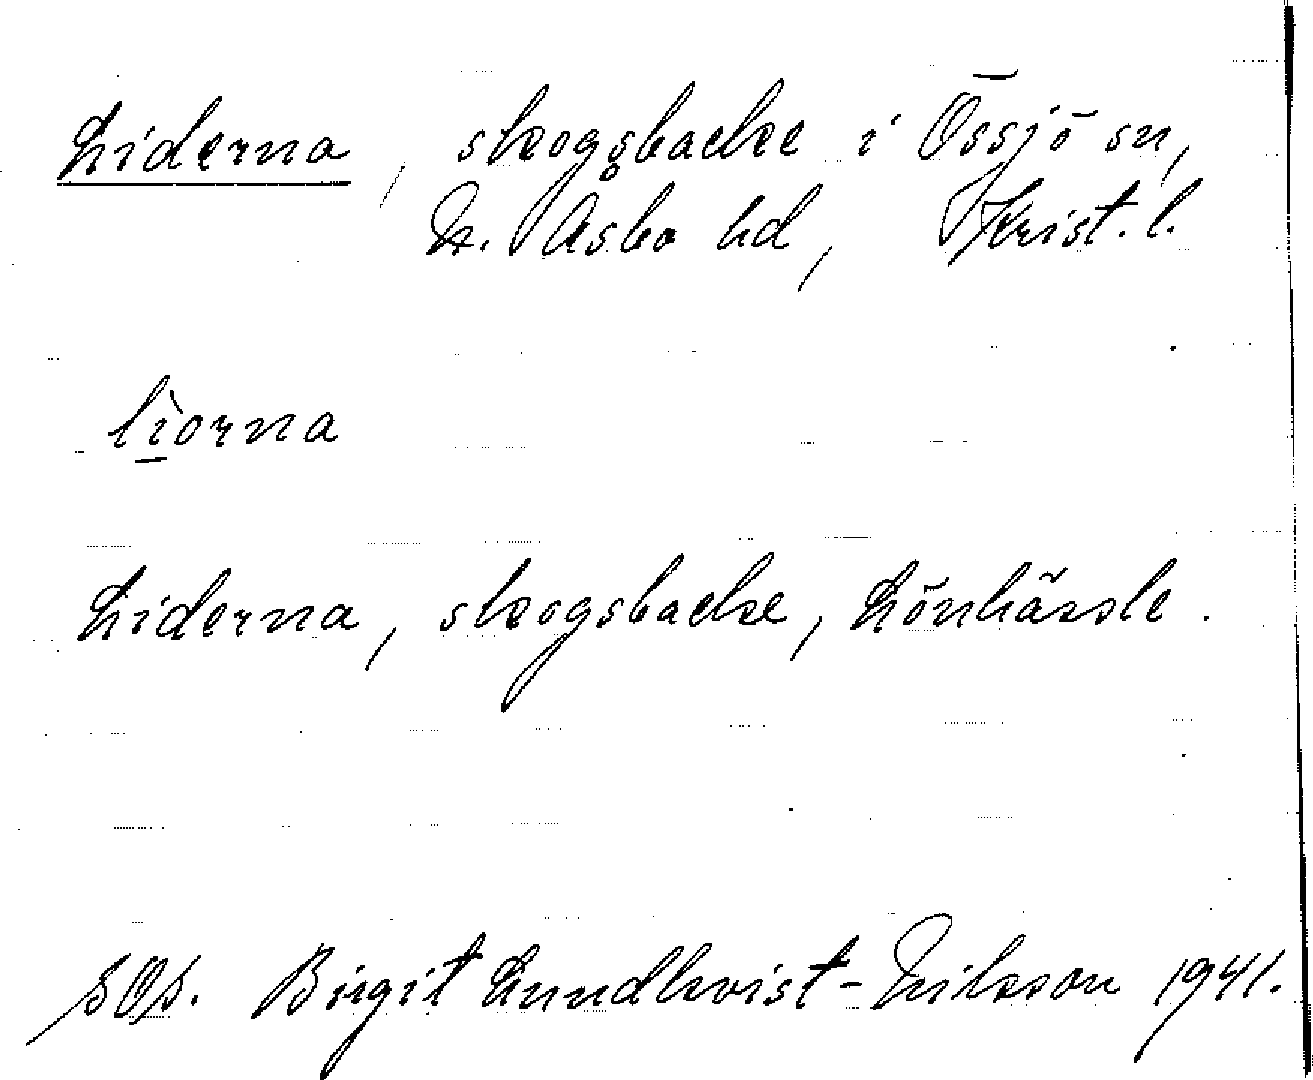 Liderna, skogsbacke i Össjö sn,
N. Åsbo hd, Krist. l.
lìorna
Liderna, skogsbacke, Lönhässle.
SOs. Birgit Lundkvist-Nilsson 1941.